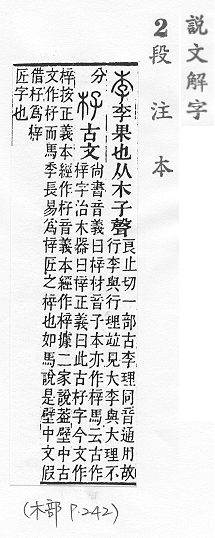 説文解字
2段注本
李 李果也从木子聲
良止切一部古李理同音通用故
行李與行理竝見大李與大理不
分
杍古文
尚書音義曰梓材音子本亦作梓馬云古作
梓字治木器曰梓正義曰此古杍字今文作
梓按正義本經作杍音義本經作梓據二家說葢壁中古
文作杍而馬季長易爲梓匠之梓也如馬說是壁中文假
借杍爲梓
匠字也
(木部 P.242)